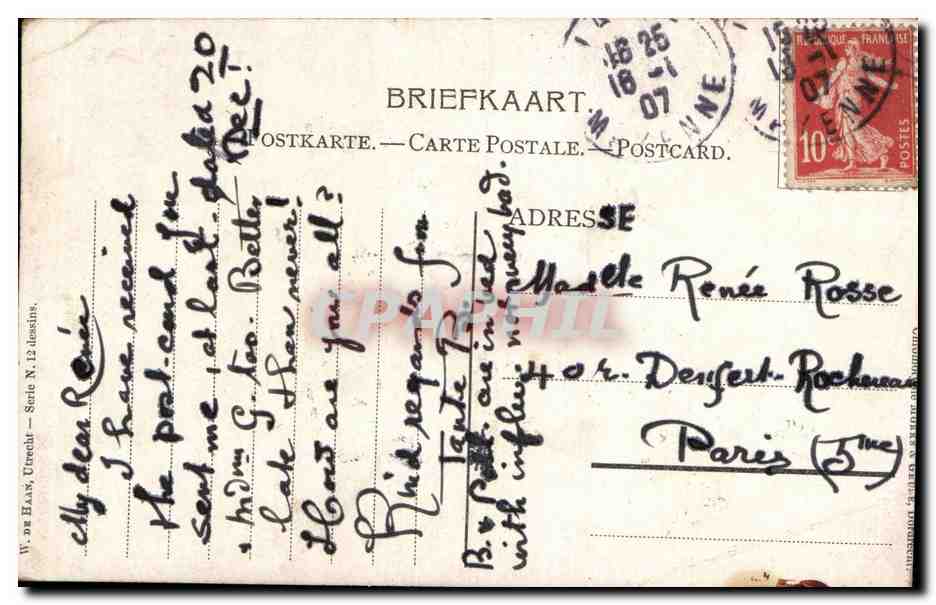 BRIEFKAART.
POSTKARTE. — CARTE POSTALE. — POSTCARD.
ADRESSE
18 25
18 -1
07
ENNE
18 -1
07
ENNE
REPUBLIQUE FRANÇAISE
10
POSTES
Madlle Renée Rosse
40 r. Denfert-Rochereau
Paris (5me)
My dear Renée
I have received
the post-card you
sent me, at last, dated 20
Dec!
Mdm G. too. Better
late than never!
How are you all?
Kind regards from
Tante
B. & are in bed
with influ. not very bad.
CPARHIL
W. DE HAAN, Utrecht — Serie N. 12 dessins.